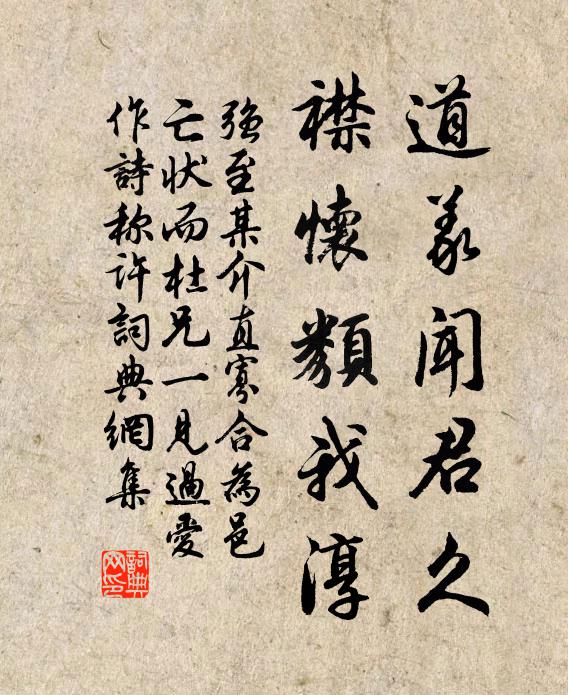 道義聞君久
襟懷類我淳
強至某介直寡合為邑
亡狀而杜兄一見過愛
作詩称許詞典網集
詞典网印